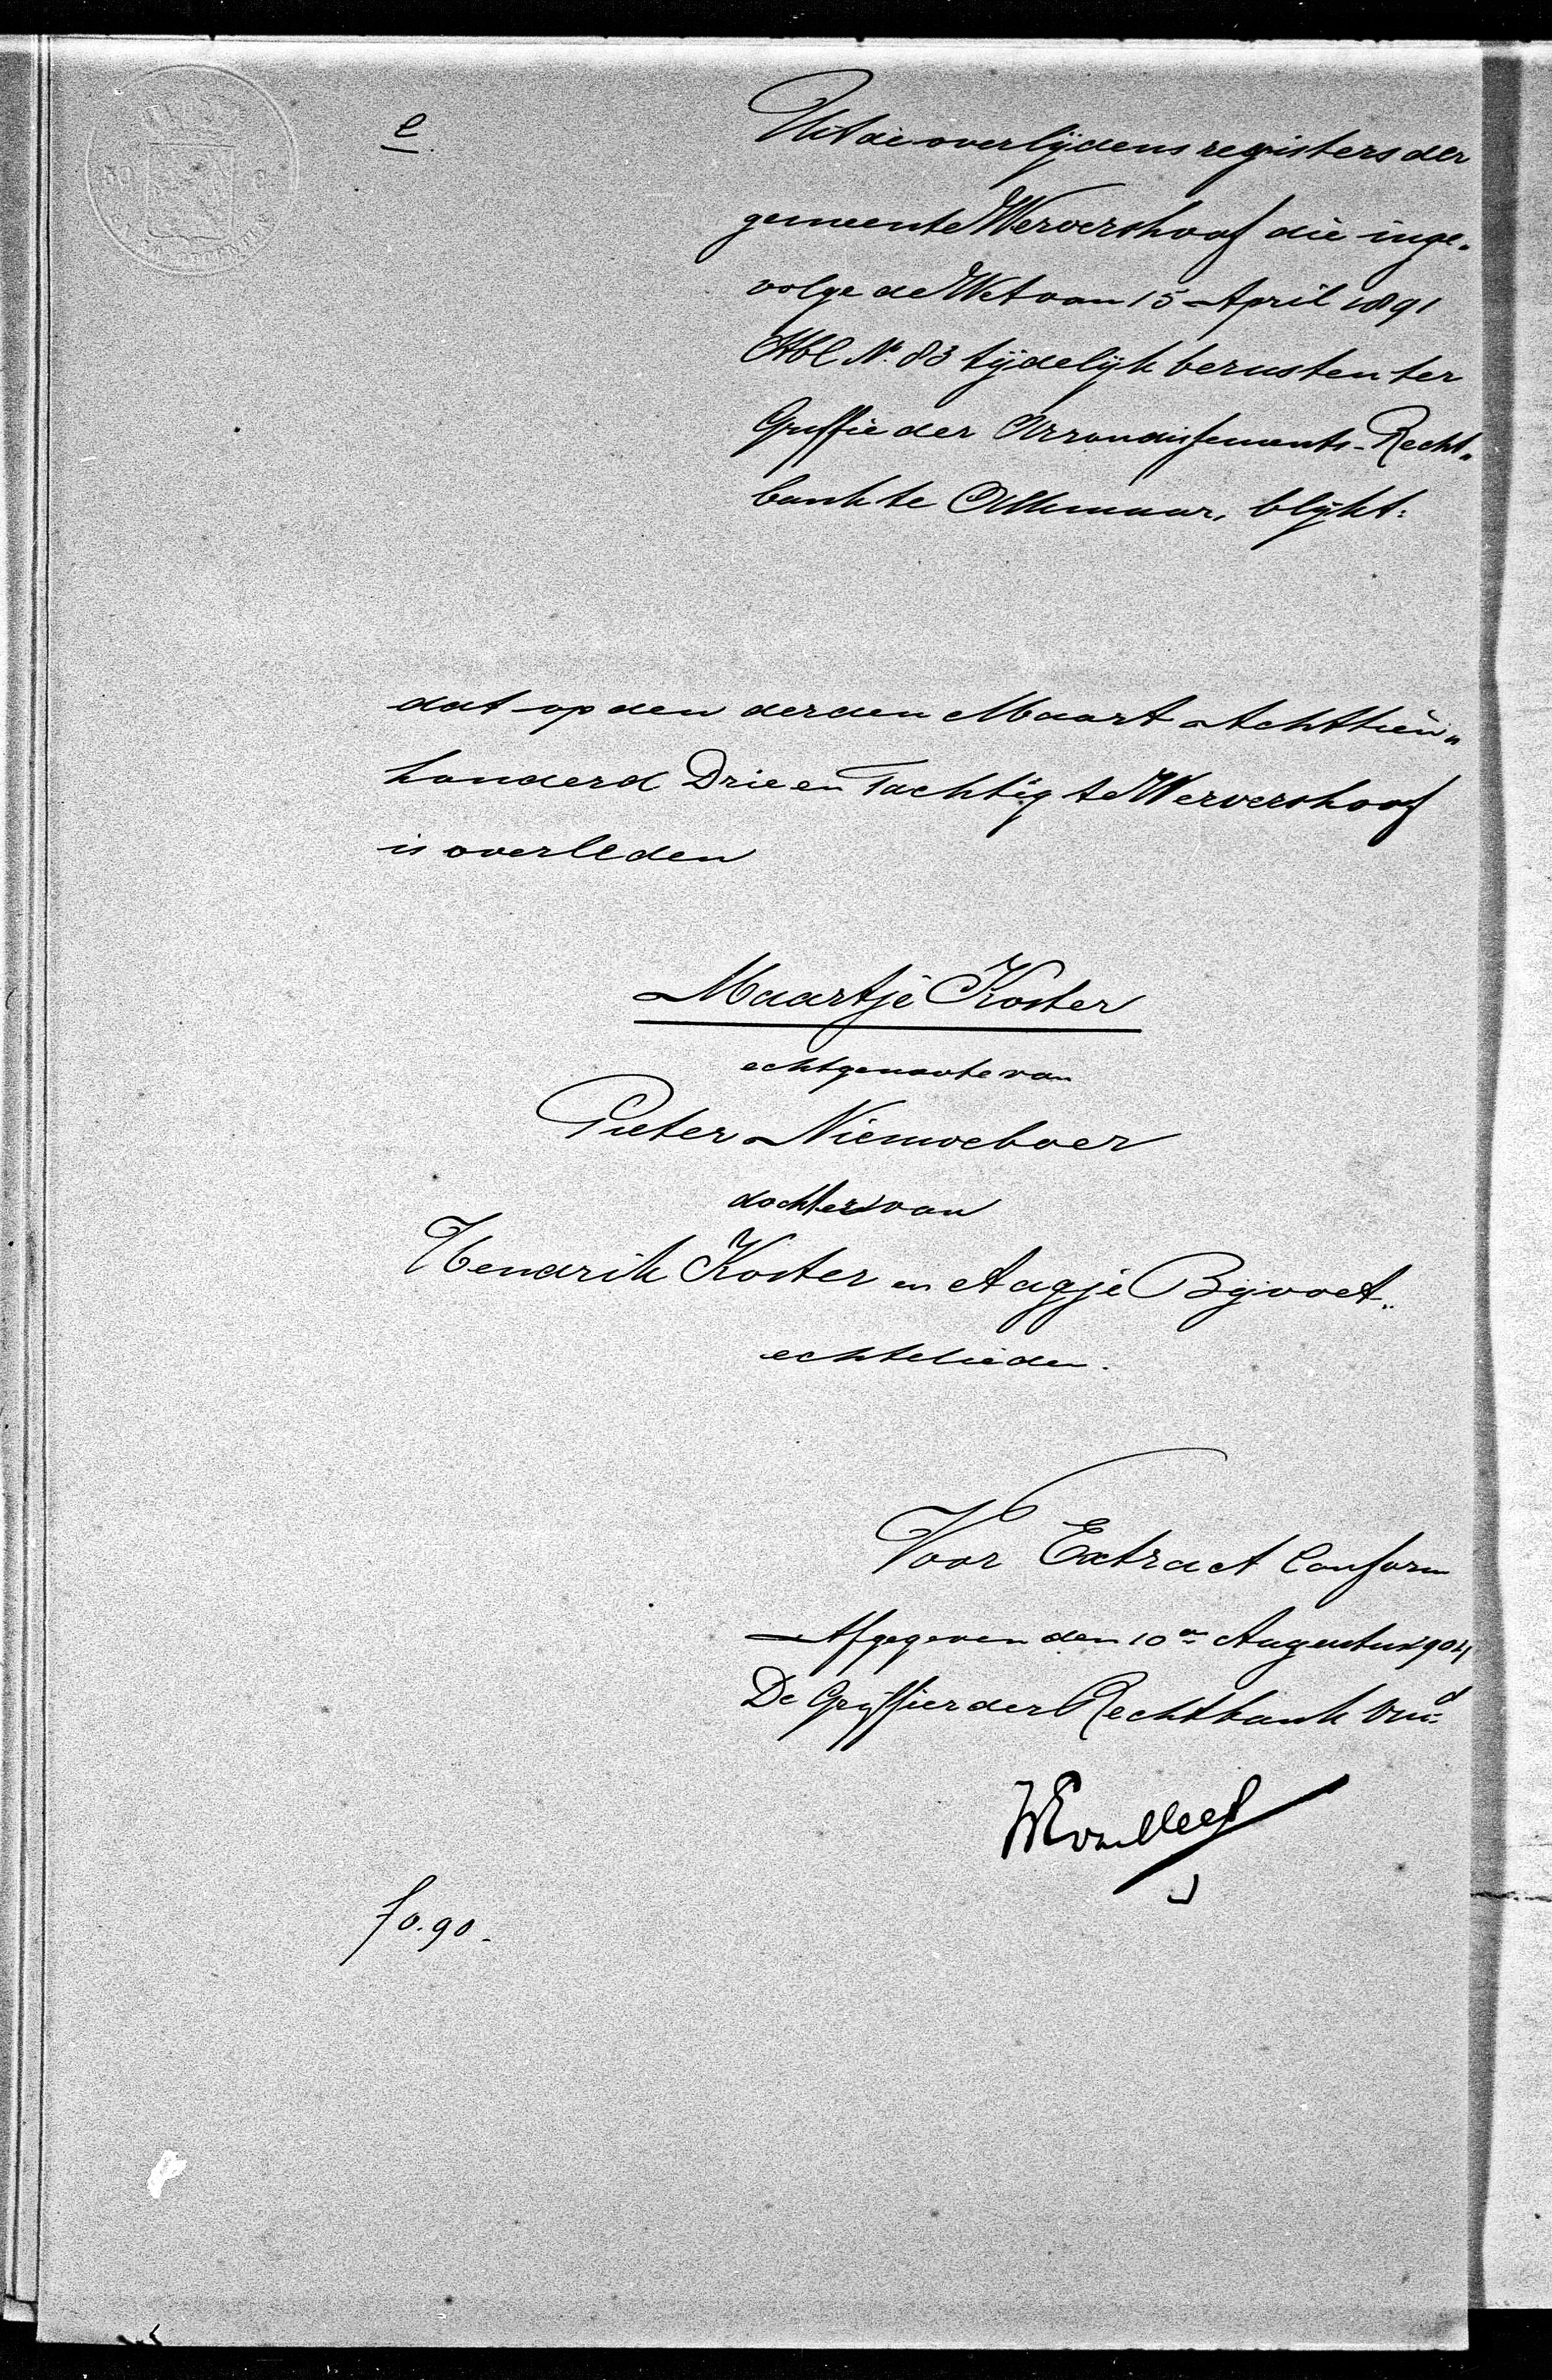 e.
Uit de overlijdens registers der
gemeente Wervershoof die inge„
volge de Wet van 15 April 1891
Stbl No. 83 tijdelijk berusten ter
Griffie der Arrondissements-Recht„
bank te Alkmaar, blijkt:
dat op den derden Maart Achttien„
honderd Drie en Tachtig te Wervershoof
is overleden
Maartje Koster
echtgenoote van
Pieter Nieuweboer
dochter van
Hendrik Koster en Aagje Bijvoet„
echtelieden.
Voor Extract Conform
Afgegeven den 10en Augustus 1904
De Griffier der Rechtbank
f 0.90.